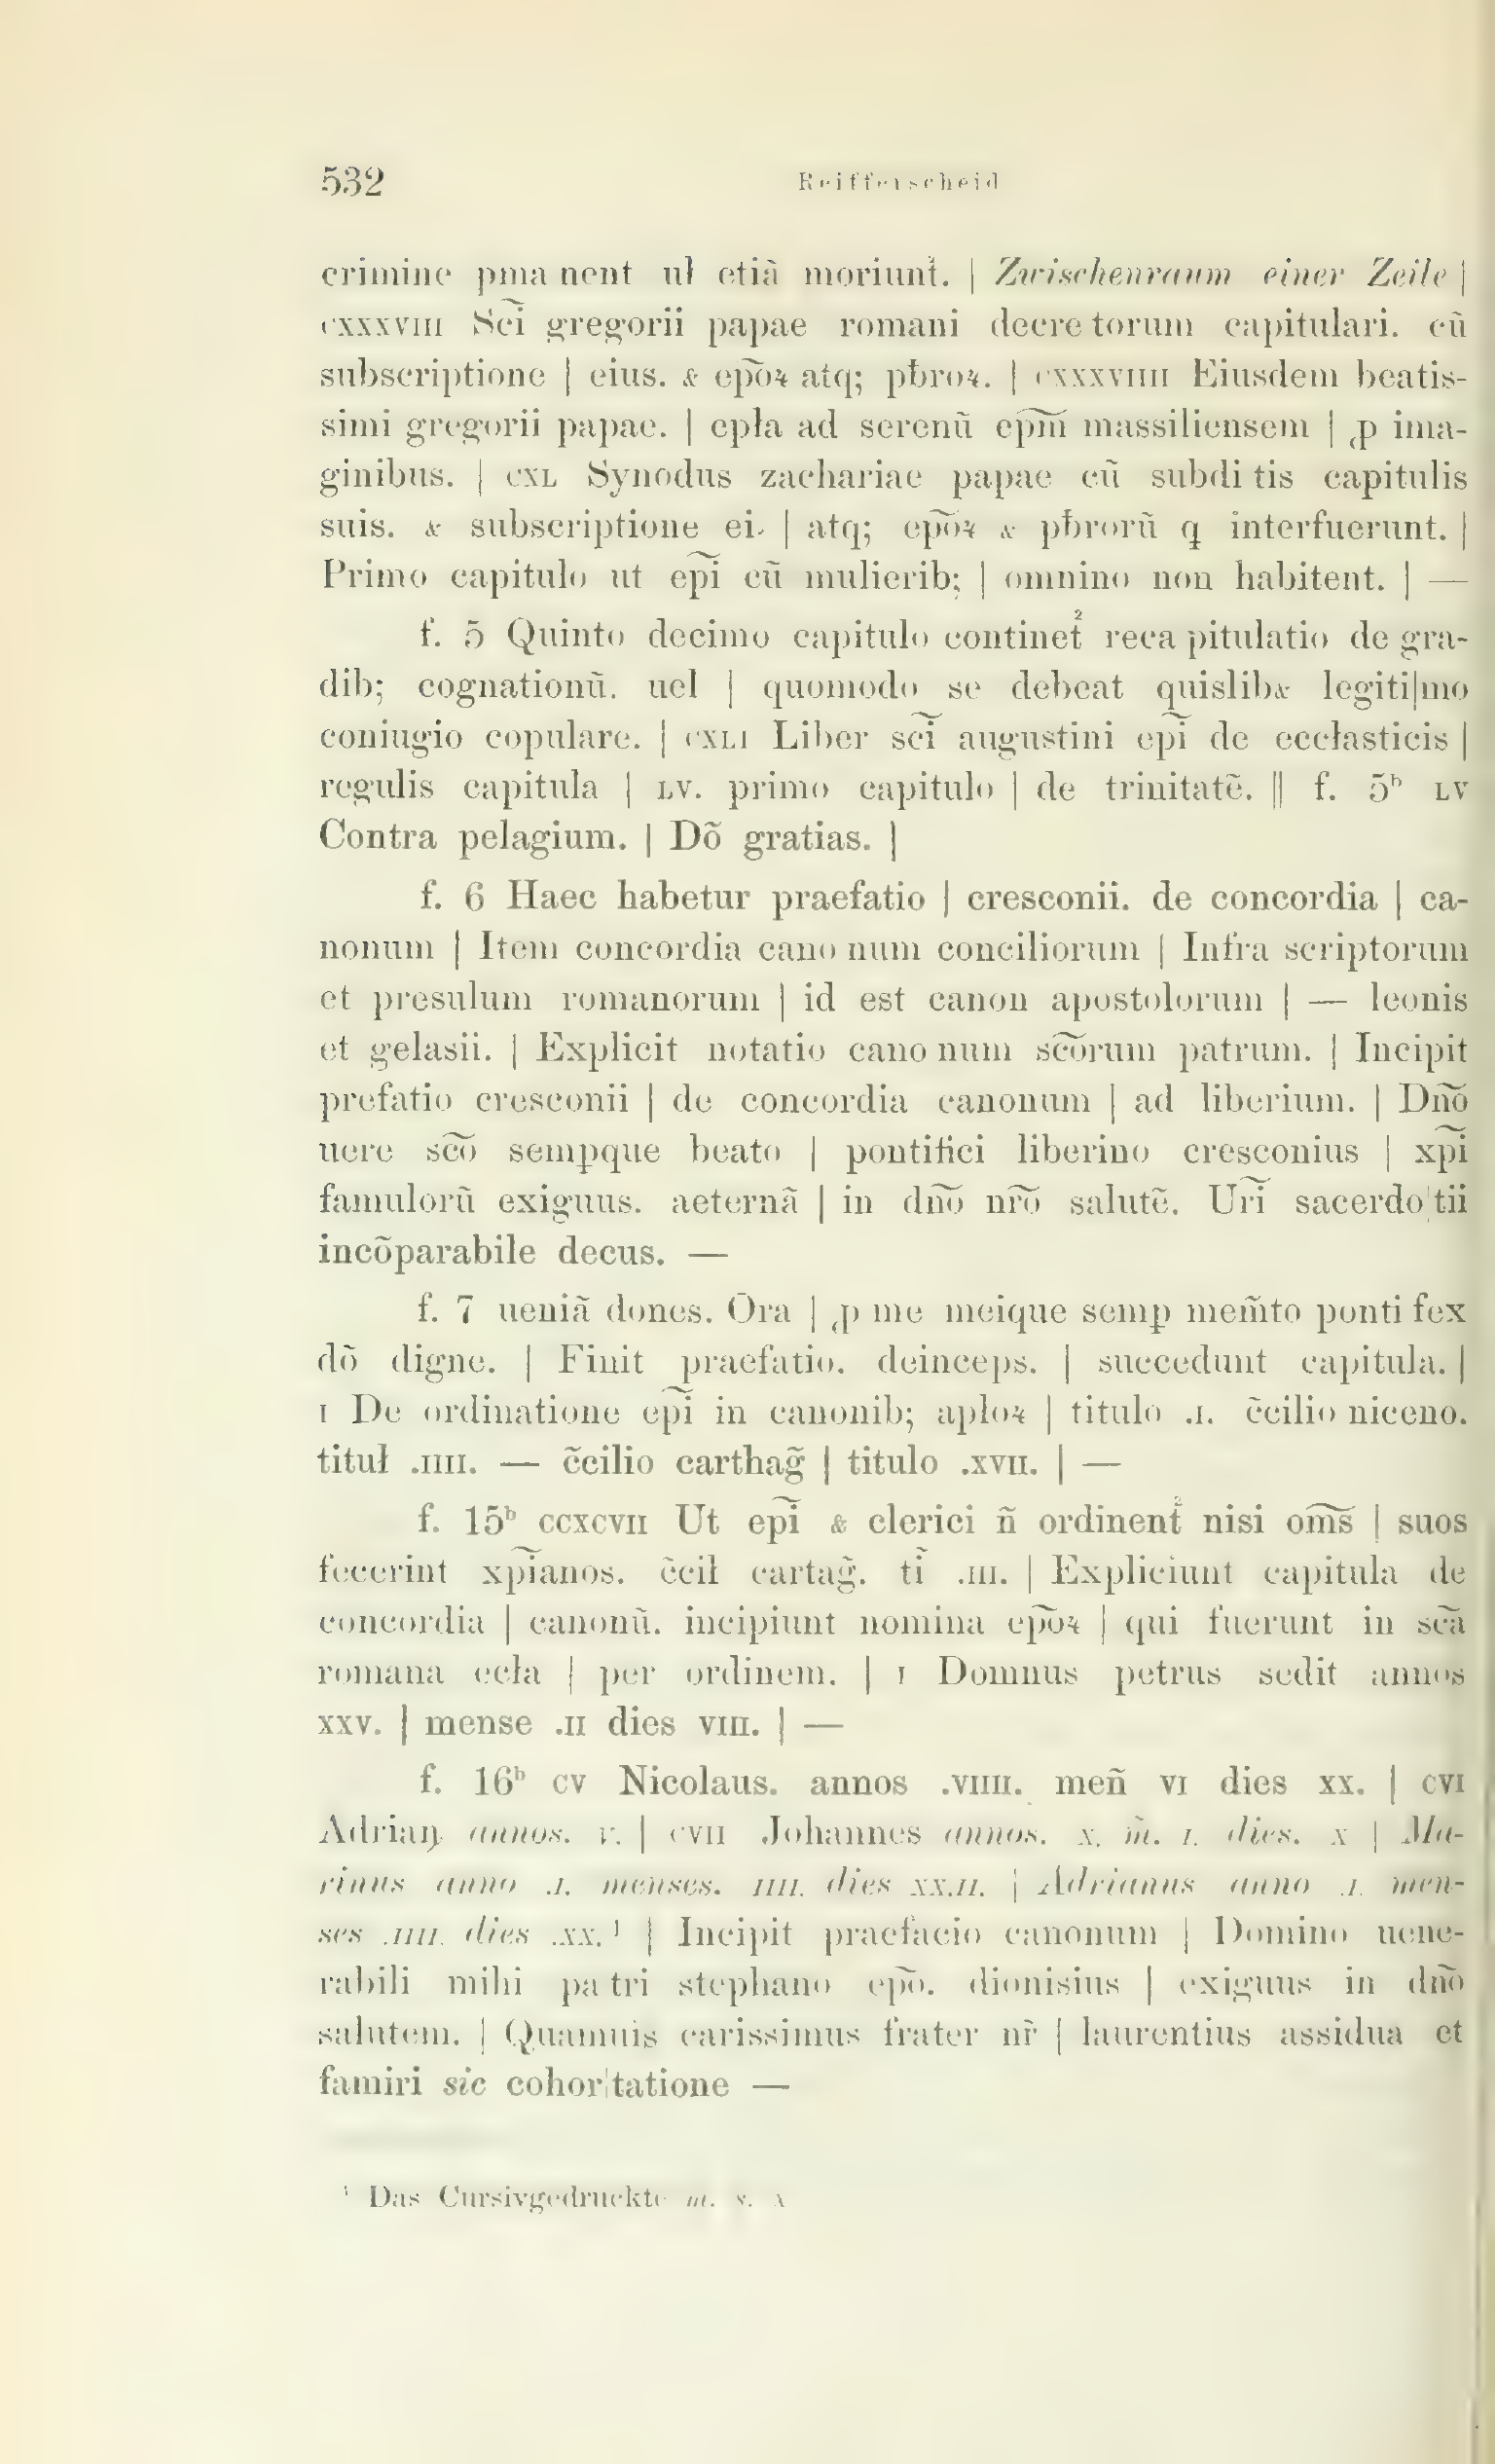 532 Reifferscheid
crimine pmanent uł etiã moriunt̉. | Zwischenraum einer Zeile |
cxxxviii Sc͠i gregorii papae romani decretorum capitulari. cũ
subscriptione | eius. & ep͠oꝝ atq; pƀroꝝ. | cxxxviiii Eiusdem beatis-
simi gregorii papae. | epła ad serenũ ep͠m massiliensem | ꝓ ima-
ginibus. | cxl Synodus zachariae papae cũ subditis capitulis
suis. & subscriptione ei. | atq; ep͠oꝝ & pƀrorũ q interfuerunt. |
Primo capitulo ut ep͠i cũ mulierib; | omnino non habitent. | —
f. 5 Quinto decimo capitulo continet̉ recapitulatio de gra-
dib; cognationũ. uel | quomodo se debeat quislib& legiti|mo
coniugio copulare. | cxli Liber sc͠i augustini ep͠i de eccłasticis |
regulis capitula | lv. primo capitulo | de trinitatẽ. || f. 5ᵇ lv
Contra pelagium. | Dõ gratias. |
f. 6 Haec habetur praefatio | cresconii. de concordia | ca-
nonum | Item concordia canonum conciliorum | Infra scriptorum
et presulum romanorum | id est canon apostolorum | — leonis
et gelasii. | Explicit notatio canonum sc͠orum patrum. | Incipit
prefatio cresconii | de concordia canonum | ad liberium. | Dn͠o
uere sc͠o sempque beato | pontifici liberino cresconius | xp͠i
famulorũ exiguus. aeternã | in dn͠o nr͠o salutẽ. Ur͠i sacerdo|tii
incõparabile decus. —
f. 7 ueniã dones. Ora | ꝓ me meique semp mem̃to pontifex
dõ digne. | Finit praefatio. deinceps. | succedunt capitula. |
i De ordinatione ep͠i in canonib; apłoꝝ | titulo .i. c̃cilio niceno.
tituł .iiii. — c̃cilio carthag̃ | titulo .xvii. | —
f. 15ᵇ ccxcvii Ut ep͠i & clerici ñ ordinent̉ nisi om͠s | suos
fecerint xp͠ianos. c̃cił cartag̃. tĩ .iii. | Expliciunt capitula de
concordia | canonũ. incipiunt nomina ep͠oꝝ | qui fuerunt in sc͠a
romana ecła | per ordinem. | i Domnus petrus sedit annos
xxv. | mense .ii dies viii. | —
f. 16ᵇ cv Nicolaus. annos .viiii. meñ vi dies xx. | cvi
Adrian annos. v. | cvii Johannes annos. x. m̃. i. dies. x | Ma-
rinus anno .i. menses. iiii. dies xx.ii. | Adrianus anno .i. men-
ses .iiii. dies .xx.¹ | Incipit praefacio canonum | Domino uene-
rabili mihi patri stephano ep͠o. dionisius | exiguus in dn͠o
salutem. | Quamuis carissimus frater nr̃ | laurentius assidua et
famiri sic cohor|tatione —
¹ Das Cursivgedruckte m. s. x